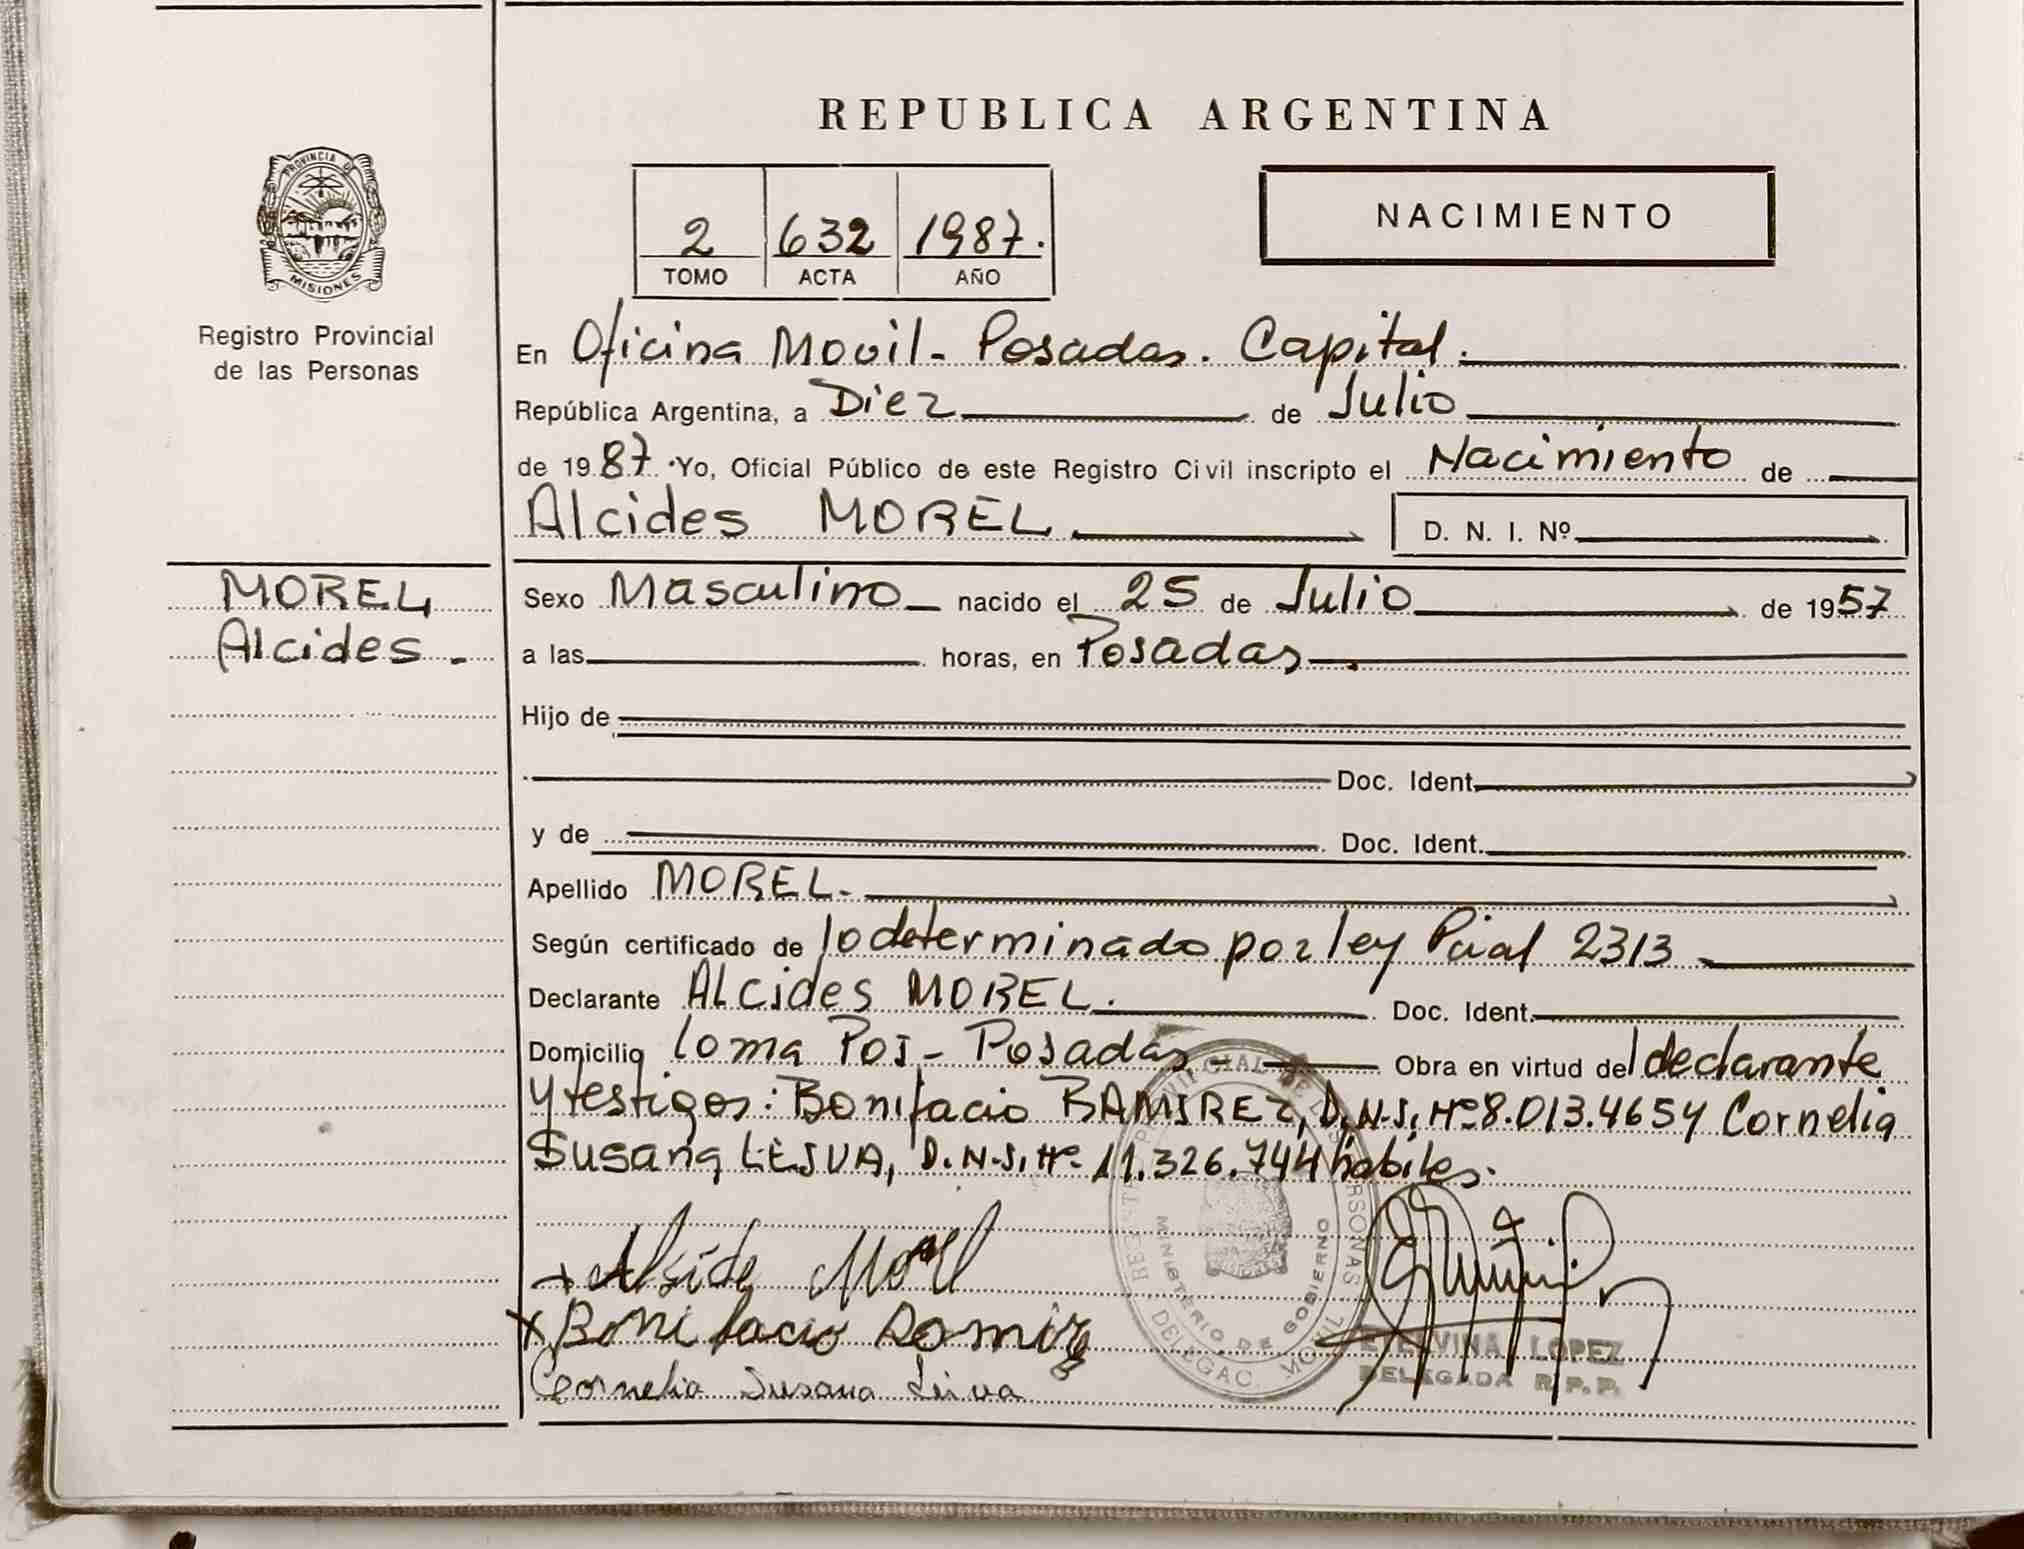 REPUBLICA ARGENTINA
PROVINCIA DE
MISIONES
Registro Provincial
de las Personas
2 632 1987.
TOMO ACTA AÑO
NACIMIENTO
En Oficina Movil - Posadas. Capital.
República Argentina, a Diez de Julio
de 1987 Yo, Oficial Público de este Registro Civil inscripto el Nacimiento de
Alcides MOREL D. N. I. Nº
MOREL
Alcides.
Sexo Masculino nacido el 25 de Julio de 1957
a las horas, en Posadas
Hijo de
Doc. Ident.
y de Doc. Ident.
Apellido MOREL.
Según certificado de lo determinado por ley Pcial 2313
Declarante Alcides MOREL. Doc. Ident.
Domicilio Loma Poi - Posadas Obra en virtud del declarante
y testigos: Bonifacio RAMIREZ, D.N.I. Nº 8.013.465 y Cornelia
Susana LEIVA, D.N.I. Nº 11.326.744 hábiles.
Alside Morel
Bonifacio Romirez
Cornelia Susana Leiva
MINISTERIO DE GOBIERNO
DELEGAC. MOVIL
ETELVINA LOPEZ
DELEGADA R.P.P.